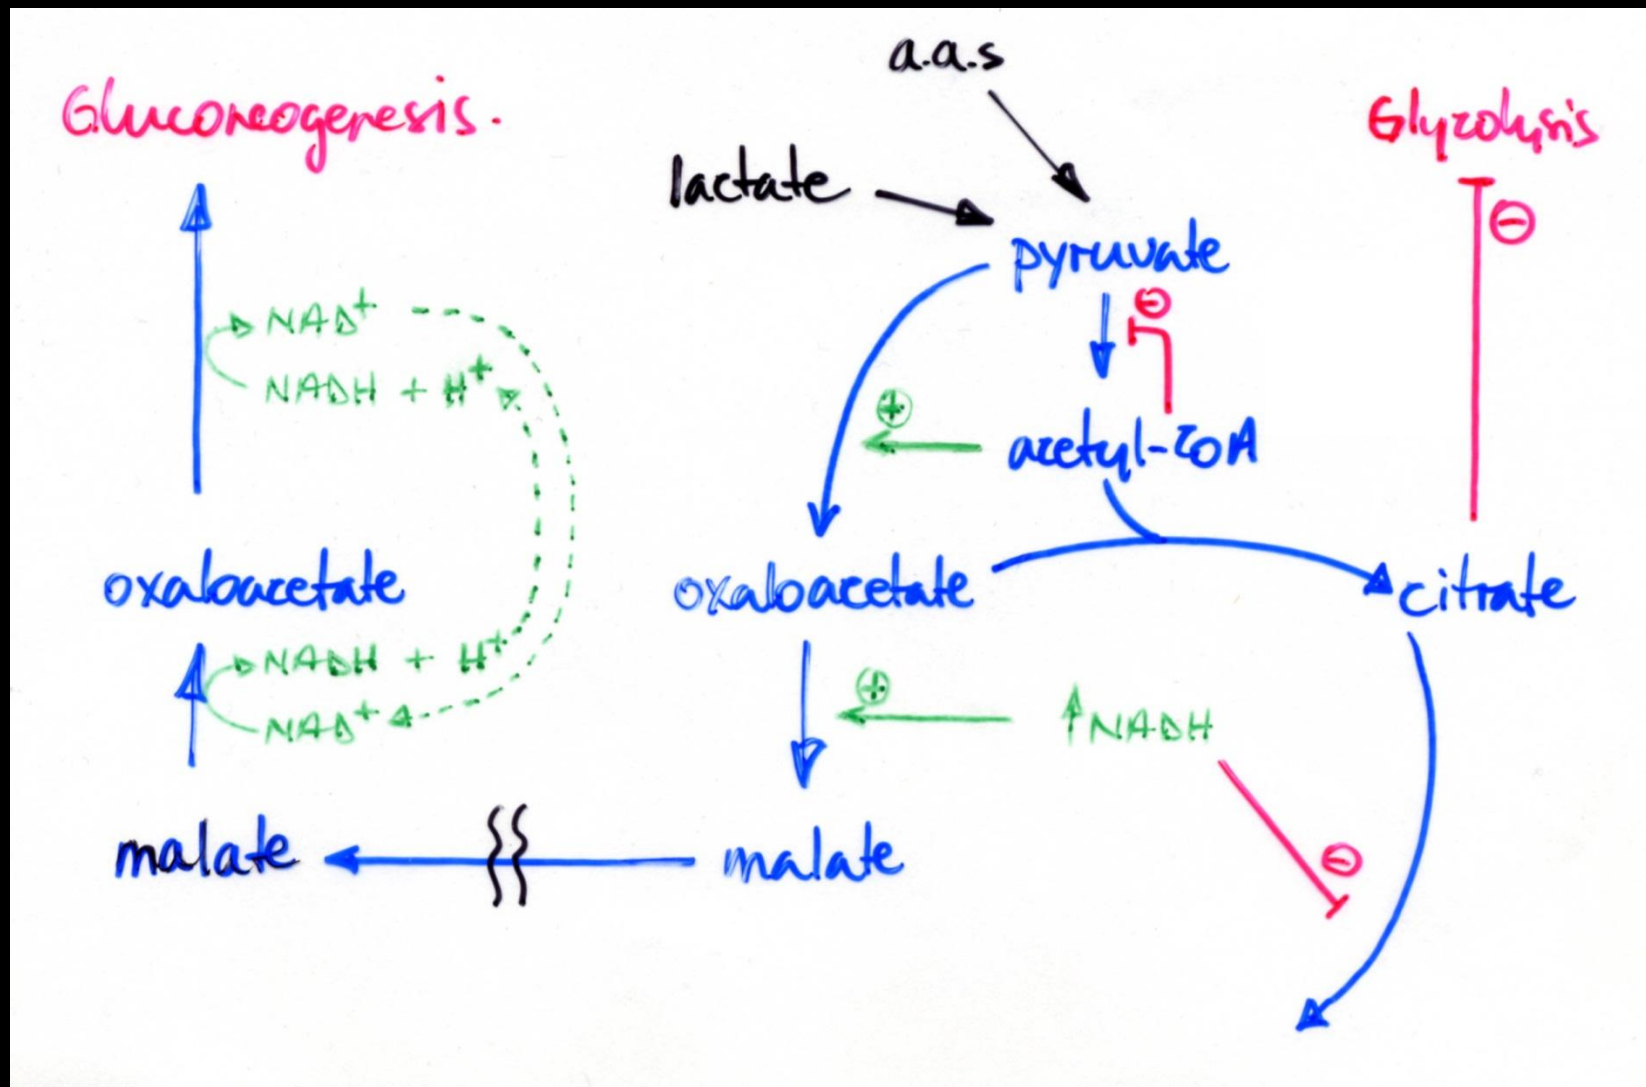 a.a.s
Gluconeogenesis.
Glycolysis
lactate
⊖
pyruvate
⊖
NAD⁺
NADH + H⁺
⊕
acetyl-CoA
oxaloacetate
oxaloacetate
citrate
NADH + H⁺
⊕
↑NADH
NAD⁺
malate
malate
⊖